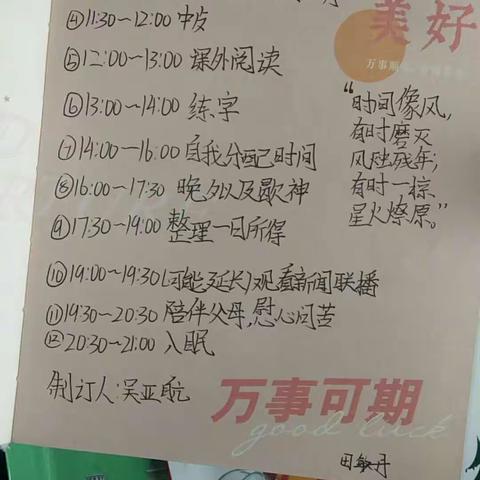 ④11:30~12:00 中歺
⑤12:00~13:00 课外阅读
⑥13:00~14:00 练字
⑦14:00~16:00 自我分配时间
⑧16:00~17:30 晚歺以及歇神
⑨17:30~19:00 整理一日所得
⑩19:00~19:30(可能延长)观看新闻联播
⑪19:30~20:30 陪伴父母,慰心问苦
⑫20:30~21:00 入眠
制订人:吴亚航
美好
万事期
“时间像风,
有时磨灭
风烛残年;
有时一棕
星火燎原。”
万事可期
good luck
田敏丹